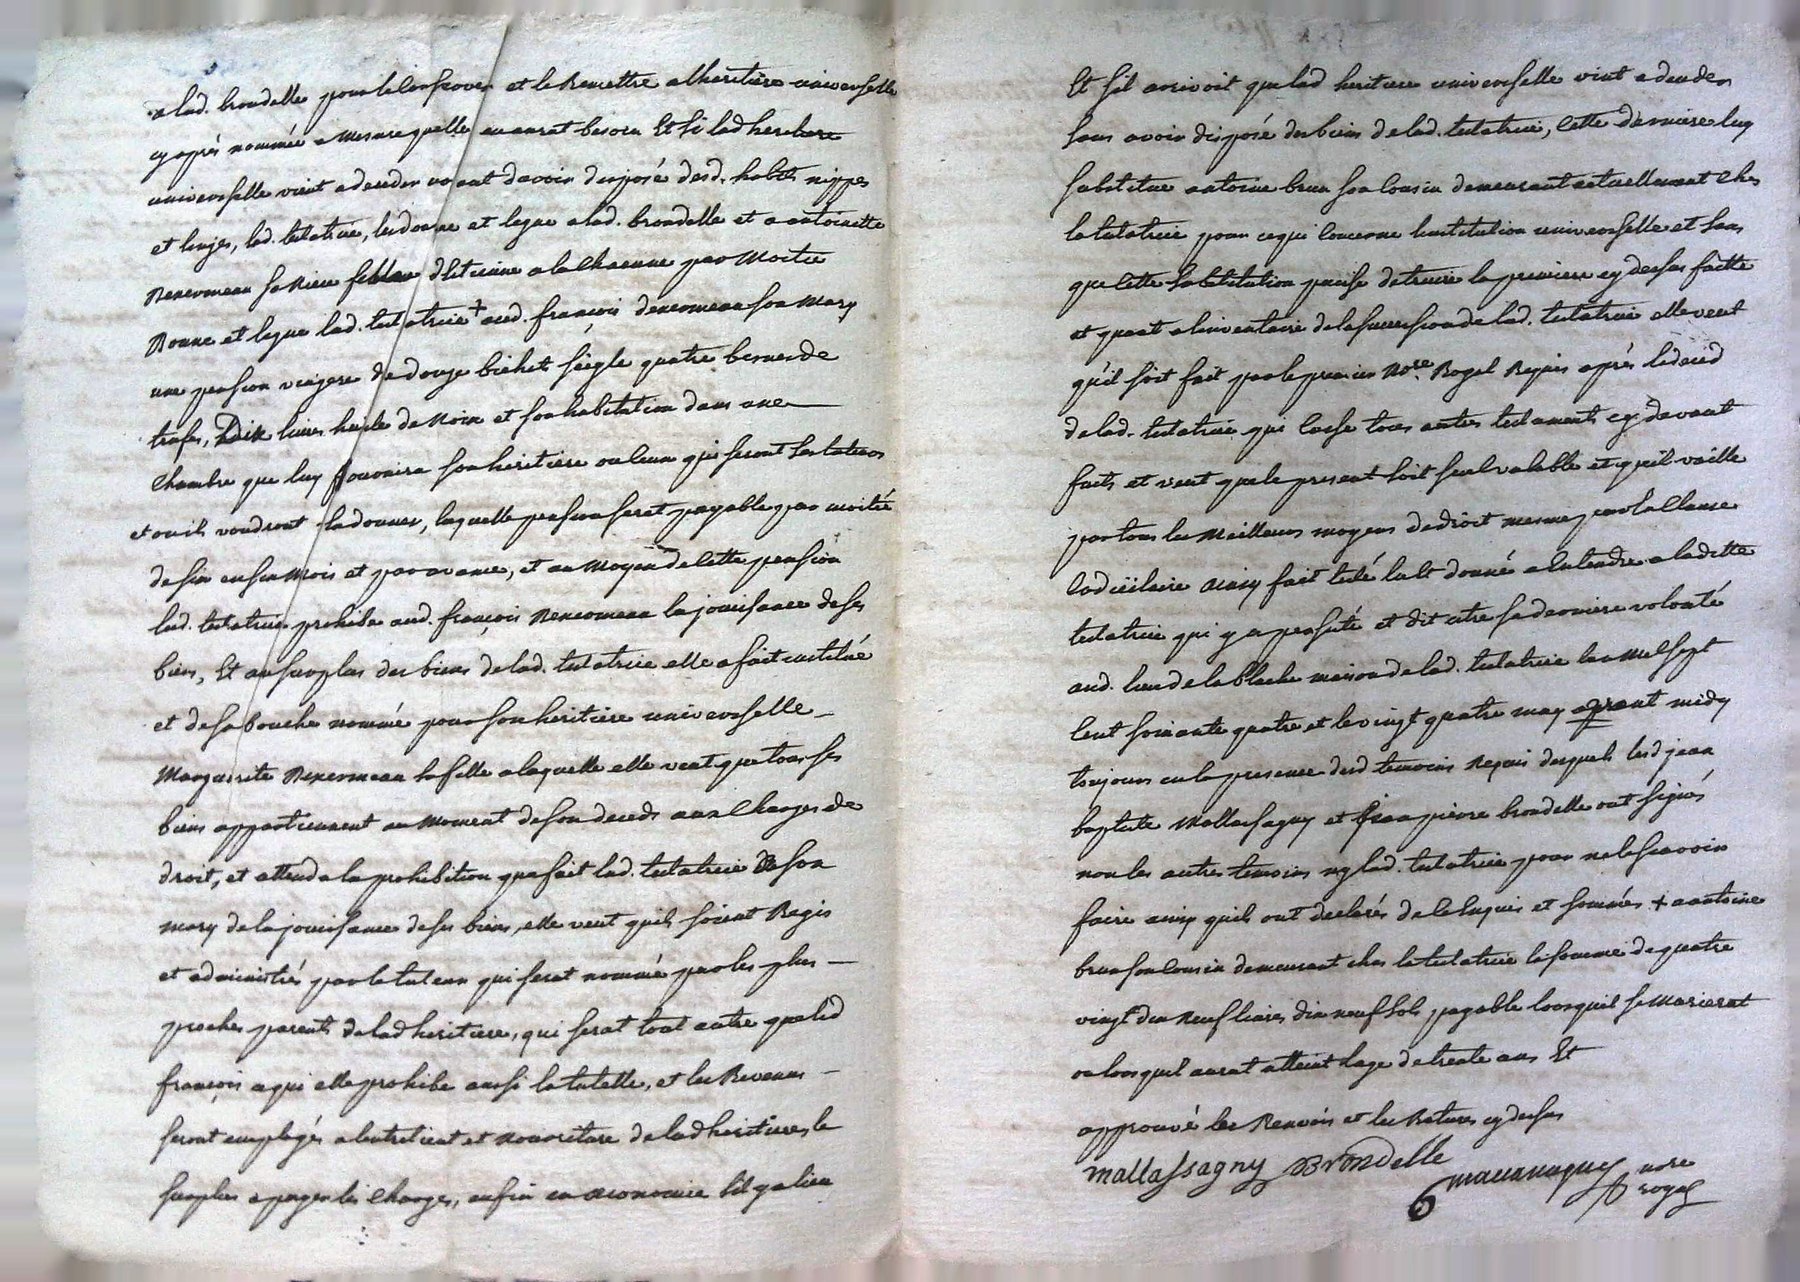 a lad. brondelle pour le Conserver et le Remettre a lheritiere universelle
cy après nommée a Mesure quelle en aurat besoin Et si lad heritiere
universelle vient a deceder avant davoir disposé desd. habits nippes
et linges, lad. testatrice, les donne et legue a lad. brondelle et a antoinette
Rencomeau sa Niece fille d'Etienne a la Chacune par Moitie
Donne et legue lad. testatrice + aud. françois Dencomeau son Mary
une pension viagere de douze bichets séigle quatre bennes de
trufes, Dix livres huile de Noix et son habitation dans une
Chambre que luy fournira son heritière ou ceux qui seront ses tuteurs
et ou ils voudront la donner, laquelle pension serat payable par moitié
de six en six Mois et par avance, et au Moyen de cette pension
lad. testatrice prohibe aud. françois Rencomeau la jouissance de ses
biens, Et au surplus des biens de lad. testatrice elle a fait institué
et de sa bouche nommée pour son heritiere universelle
Marguerite Rencomeau sa fille a laquelle elle veut que tous ses
biens appartiennent au Moment de son deceds aux Charges de
droit, et attendu la prohibition que fait lad. testatrice De son
mary de la jouissance de ses biens, elle veut quils soient Regis
et administrés par le tuteur qui serat nommée par les plus
proches parents de lad heritiere, qui serat tout autre que led
françois a qui elle prohibe aussi la tutelle, et les Revenus
seront employés a lentretient et Nourriture de lad heritiere, le
surplus a payer les Charges, enfin en œconomie sil y a lieu
Et sil arrivoit que lad heritiere universelle vint a deceder
sans avoir disposé des biens de lad. testatrice, Cette derniere luy
substitue antoine brun son Cousin demeurant actuellement Ches
la testatrice pour ce qui Concerne linstitution universelle et sans
que Cette substitution puisse detruire la premiere cy dessus faitte
et quant a linventaire de la succession de lad. testatrice elle veut
qu'il soit fait par le premier Nore. Royal Requis après le deced
de lad. testatrice qui Casse tous autres testaments cy devant
faits et veut que le present soit seul valable et quil vaille
par tous les Meilleurs moyens de droit mesme par la Clause
Codicilaire ainsy fait testé lu et donné a entendre a laditte
testatrice qui y a persisté et dit etre sa derniere volonté
aud. lieu de la blache maison de lad. testatrice lan Mil sept
Cent soixante quatre et le vingt quatre may avant midy
toujours en la presence desd temoins Requis desquels lesd jean
baptiste Mallassagny et jean pierre brondelle ont signés
non les autres temoins ny lad. testatrice pour ne le scavoir
faire ainsy quils ont declarés de ce Enquis et sommés + a antoine
brun son Cousin demeurant ches la testatrice la somme de quatre
vingt dix Neuf livres dix neuf sols payable lorsquil se Marierat
ou lorsquil aurat atteint lage de trente ans Et
approuvé les Renvois et les Ratures cy dessus
mallassagny Brondelle
nore
royal